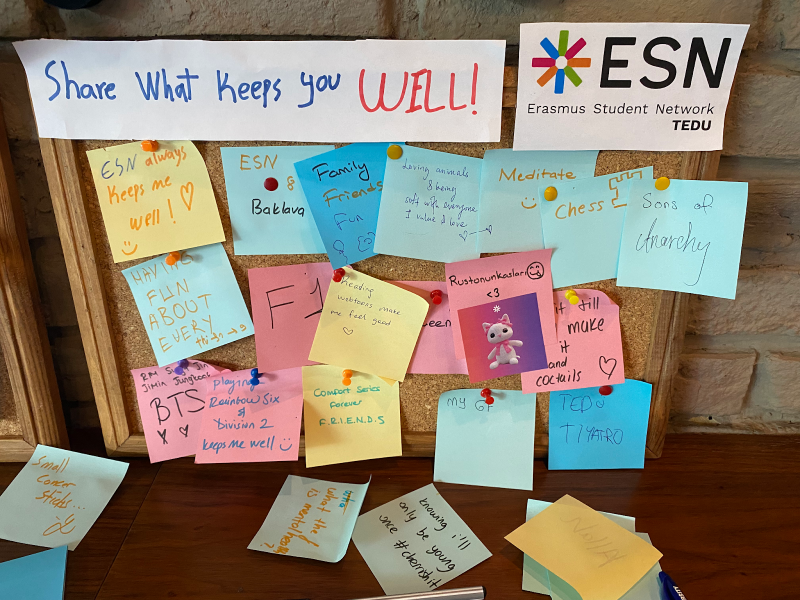 Share What Keeps you WELL!
ESN
Erasmus Student Network
TEDU
ESN always
keeps me
well!
ESN
&
Baklava
Family
Friends
Fun
Loving animals
& being
soft with everyone
I value & love
Meditate
Chess
Sons of
Anarchy
HAVING
FUN
ABOUT
EVERY
things
F1
Reading
webtoons make
me feel good
een
Rustonunkasları
<3
it till
make
it
and
cocktails
RM
Jimin Jungkook
BTS
playing
Rainbow Six
&
Division 2
keeps me well
Comfort Series
Forever
F.R.I.E.N.D.S
my GF
TEDÜ
TİYATRO
Small
Cancer
sticks...
what the
is mental health
?
knowing i'll
only be young
once #cherishit